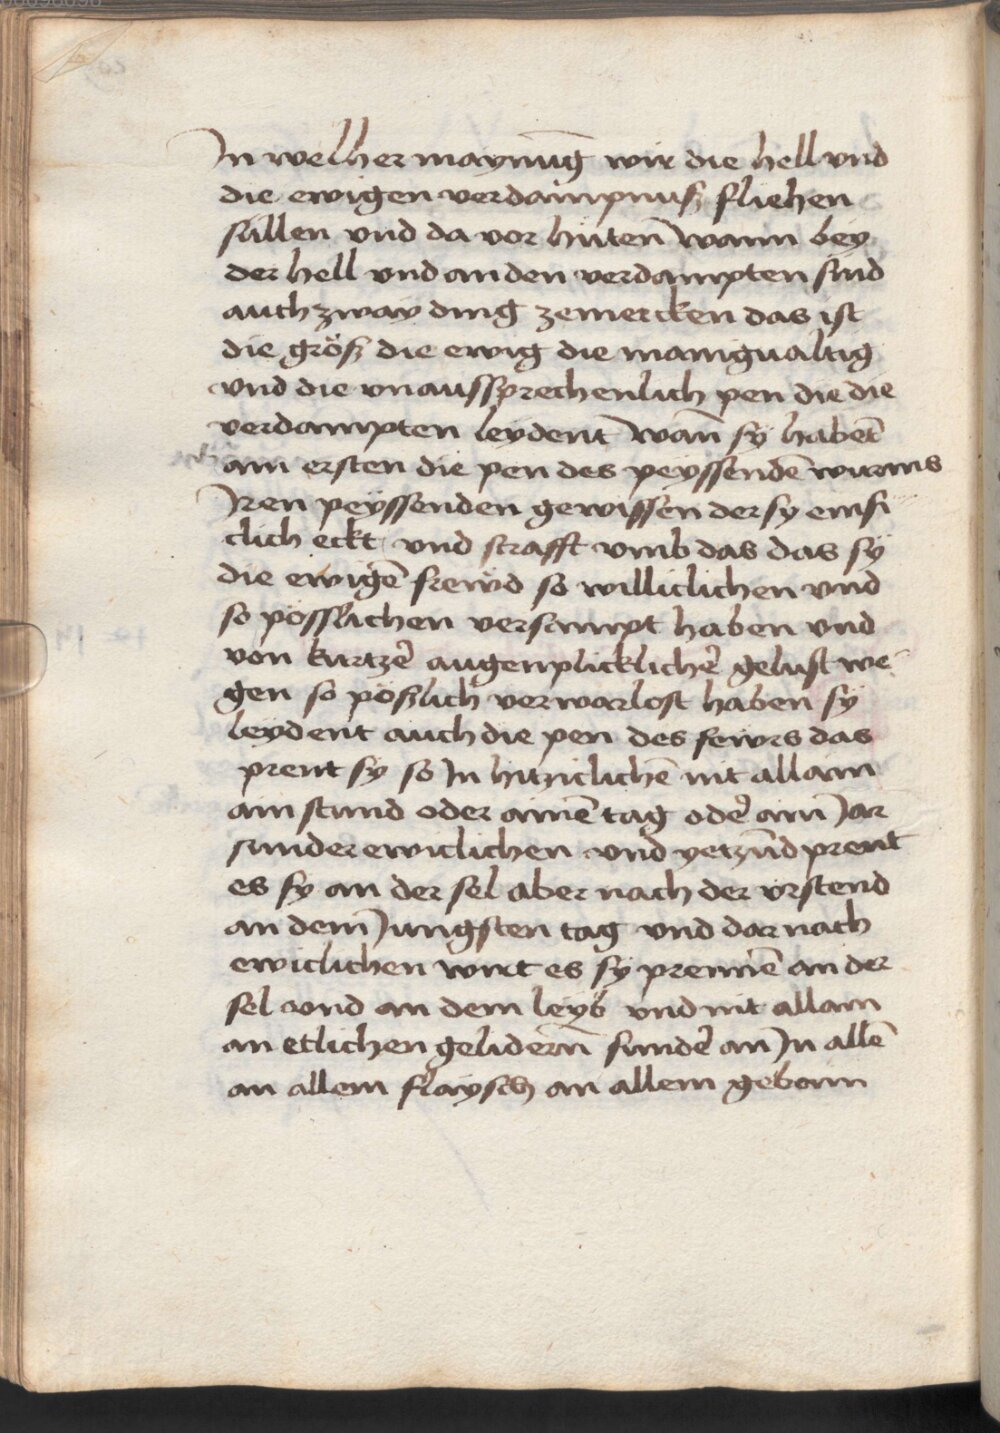 In welher maynunḡ wir die hell vnd
die ewigen verdampnuß fliehen
süllen vnd da vor hüten̄ wann bey
der hell vnd an den verdampten sind
auch zway ding zemercken das ist
die größ die ewig die manigualtig
vnd die vnaussprechenlich pen die die
verdampten leydent wan̄ sy habēt
am ersten die pen des peyssendē wurms
Iren peyssenden gewissen der sy emsi
clich eckt vnd strafft vmb das das sÿ
die ewigē frewd so williclichen vnd
so posslichen versampt haben vnd
von kurtzer̄ augenplicklicher̄ gelust we
gen so pößlich verwarlost haben sÿ
leydent auch die pen des fewrs das
prent sy so In hitziclichē nit allain
ain stund oder ainē tag oder̄ ain Jar
sunder ewiclichen vnd yetzūd prent
es sy an der sel aber nach der vrstend
an dem Jungsten tag vnd dar nach
ewiclichen wirt es sÿ prennē an der
sel vnd an dem leyb vnd nit allain
an etlichen gelidern̄ sunder̄ an In allē
an allem flaysch an allem gebain